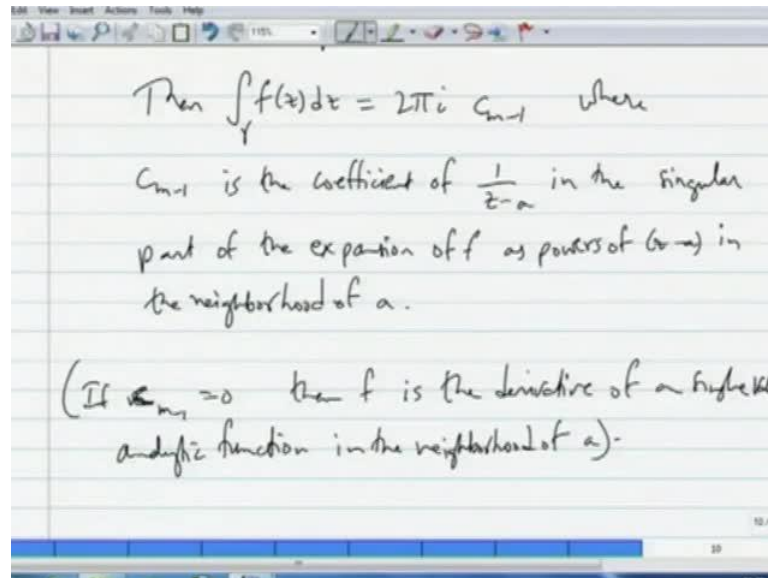 Edit View Insert Actions Tools Help
115%
Then ∫_γ f(z)dz = 2πi c_{m-1} where
c_{m-1} is the coefficient of 1/(z-a) in the singular
part of the expansion of f as powers of (z-a) in
the neighborhood of a.
(If c_{m-1} =0 then f is the derivative of a single
analytic function in the neighborhood of a).
10